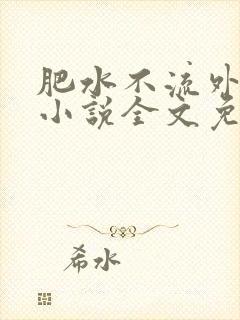 肥水不流外
小説全文免
希水